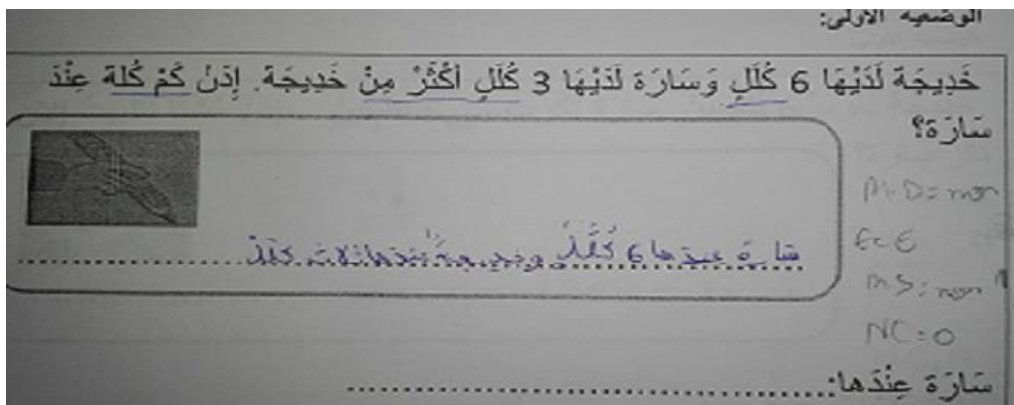 الوضعية الأولى:
خَدِيجَة لَدَيْهَا 6 كُلَلٍ وَسَارَة لَدَيْهَا 3 كُلَلٍ أَكْثَرْ مِنْ خَدِيجَة. إِذَنْ كَمْ كُلَة عِنْدَ
سَارَة؟
M.D = non
سارة عندها 6 كُلَلْ وخديجة عندها ثلاث كلل
M.S = non
NC = 0
سَارَة عِنْدَها: